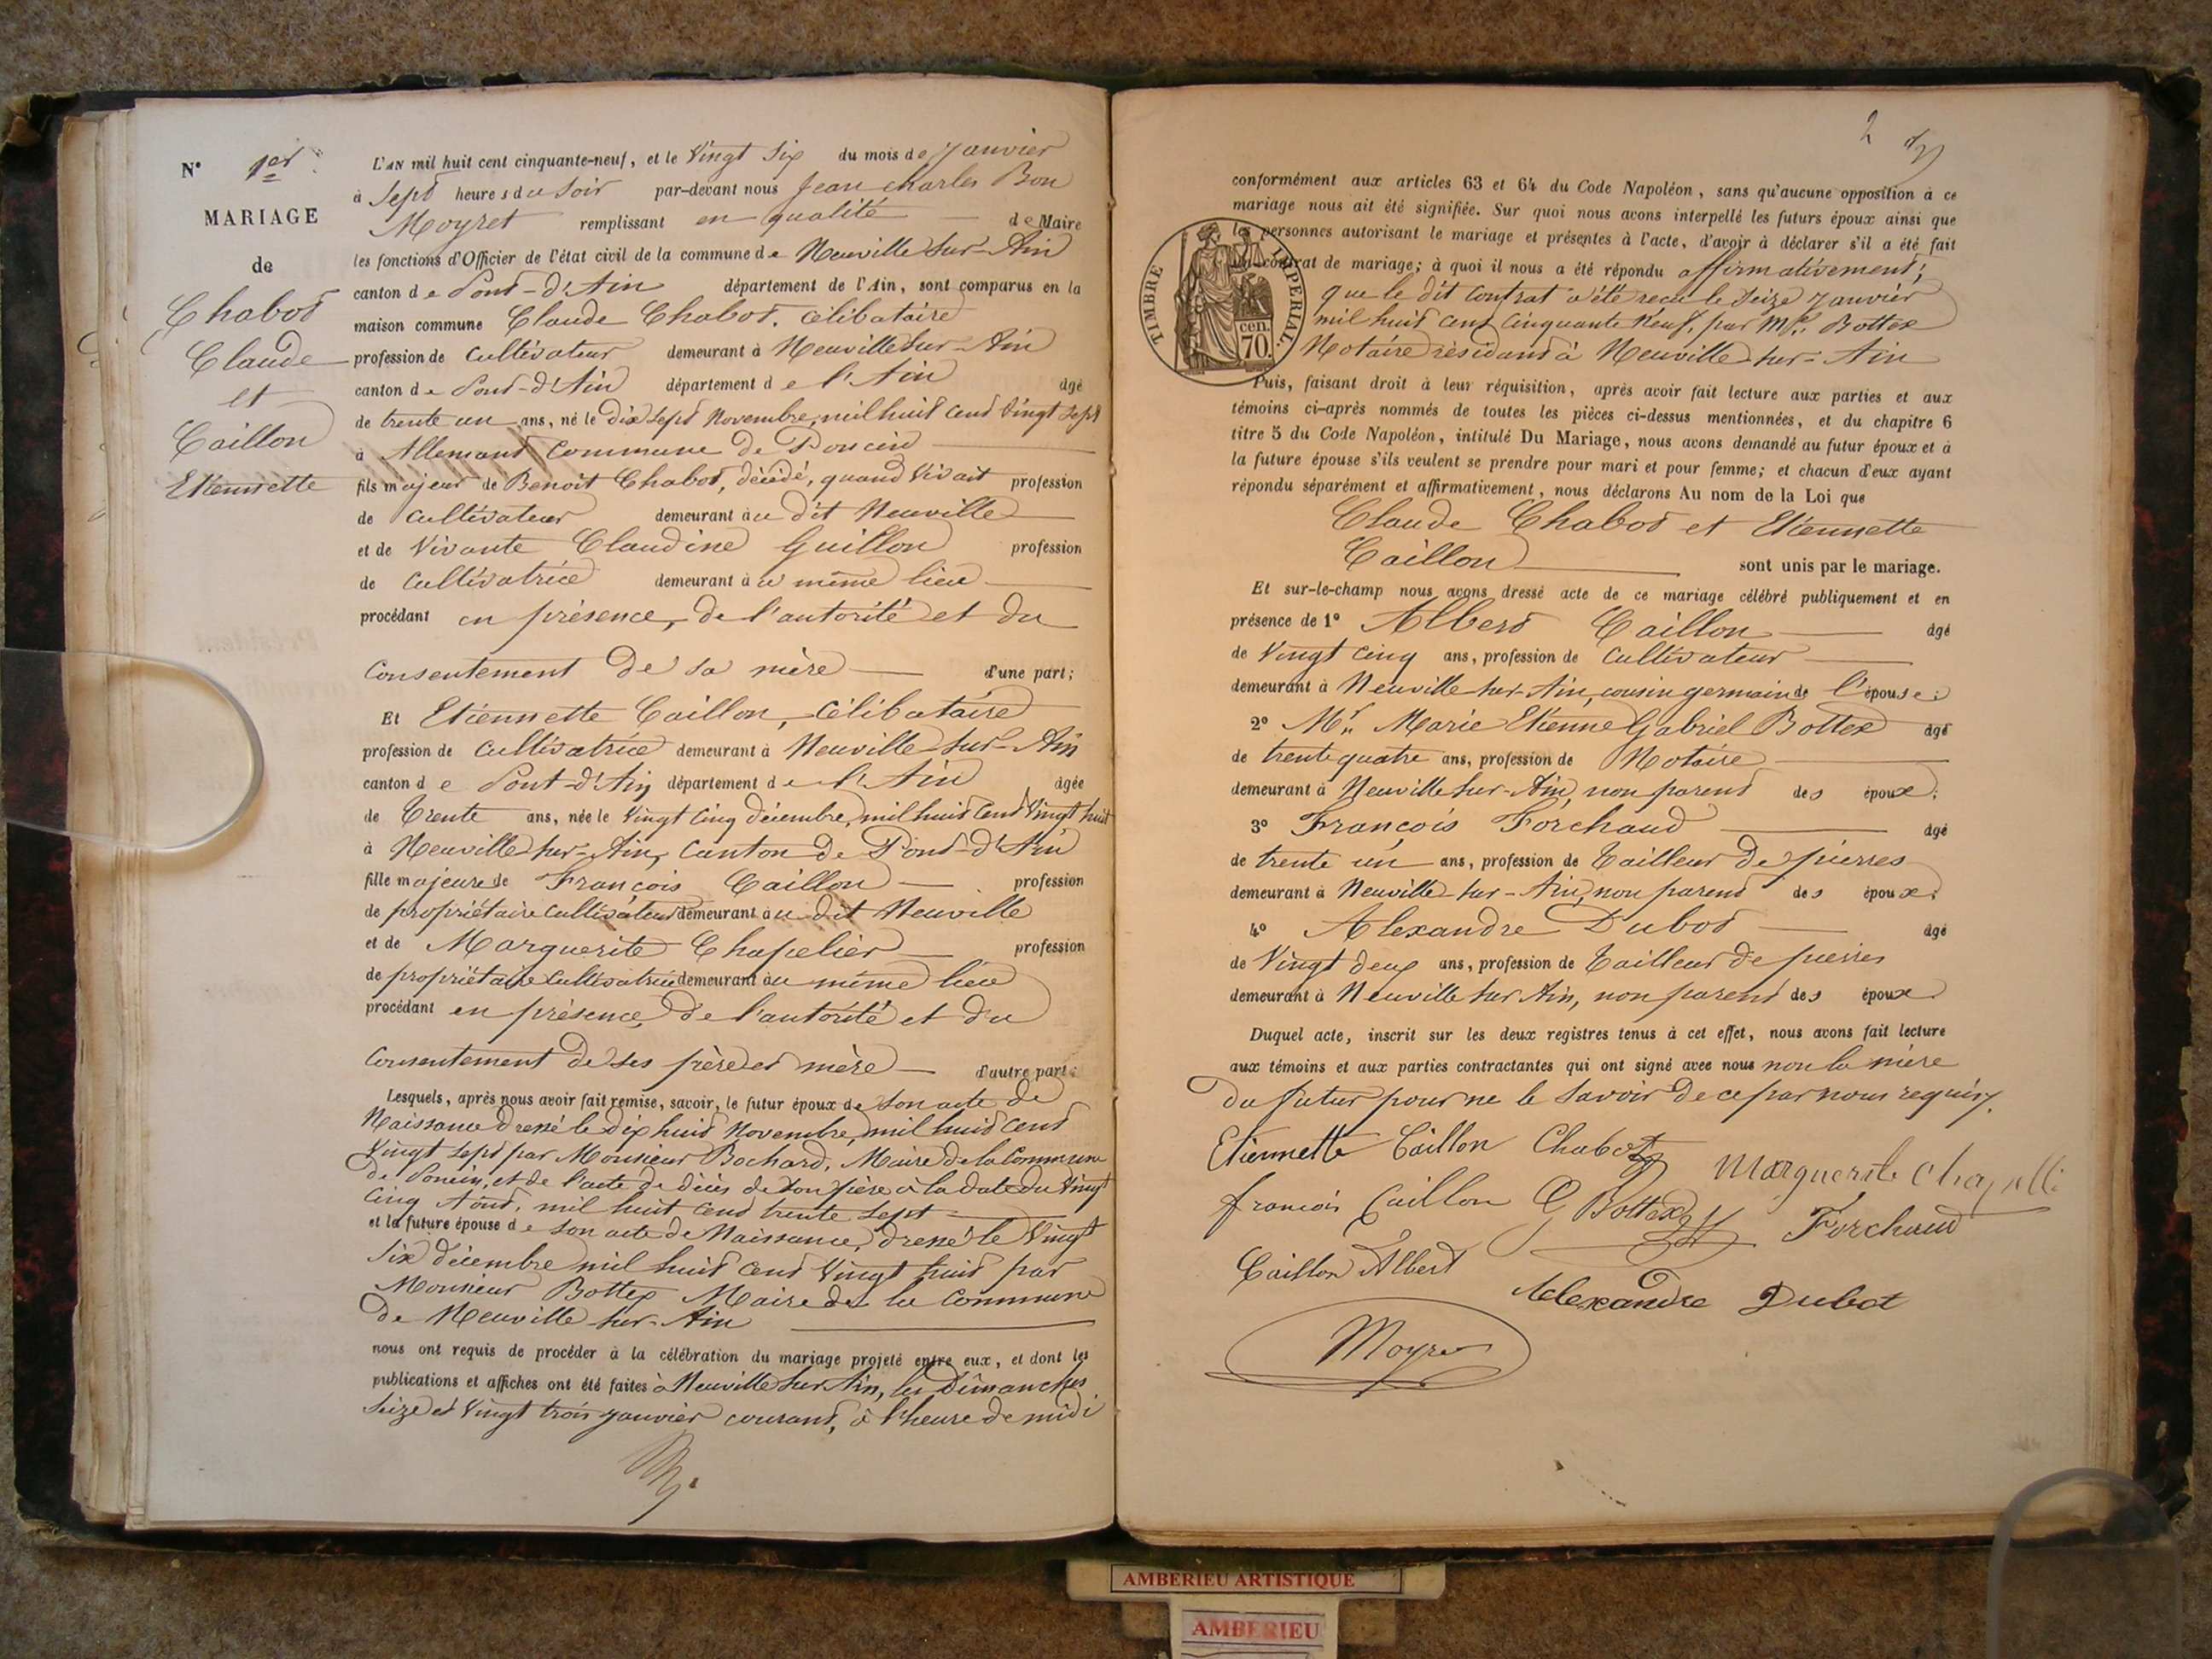 N° 1er
MARIAGE
de
Chabot
Claude
et
Caillon
Etiennette
L'AN mil huit cent cinquante-neuf, et le Vingt Six du mois de Janvier
à Sept heures du Soir par-devant nous Jean Charles Bon
Moyret remplissant en qualité de Maire
les fonctions d'Officier de l'état civil de la commune de Neuville sur-Ain
canton de Pont-d'Ain département de l'Ain, sont comparus en la
maison commune Claude Chabot, célibataire
profession de Cultivateur demeurant à Neuville sur-Ain
canton de Pont-d'Ain département de l'Ain âgé
de trente un ans, né le dix sept Novembre, mil huit cent vingt sept
à Allemant Commune de Poncin
fils majeur de Benoit Chabot, décédé, quand Vivait profession
de Cultivateur demeurant au dit Neuville
et de Vivante Claudine Guillon profession
de Cultivatrice demeurant à ce même lieu
procédant en présence, de l'autorité et du
Consentement de sa mère d'une part;
Et Etiennette Caillon, célibataire
profession de Cultivatrice demeurant à Neuville-sur-Ain
canton de Pont-d'Ain département de l'Ain âgée
de Trente ans, née le Vingt Cinq décembre, mil huit cent Vingt huit
à Neuville sur-Ain, Canton de Pont-d'Ain
fille majeure de François Caillon profession
de propriétaire Cultivateur demeurant au dit Neuville
et de Marguerite Chapelier profession
de propriétaire Cultivatrice demeurant au même lieu
procédant en présence, de l'autorité et du
Consentement de ses père et mère d'autre part;
Lesquels, après nous avoir fait remise, savoir, le futur époux de Son acte de
Naissance dressé le dix huit Novembre, mil huit cent
Vingt Sept par Monsieur Bochard, Maire de la Commune
de Poncin, et de l'acte de décès de Son père à la date du Vingt
Cinq Août, mil huit cent trente Sept
et la future épouse de Son acte de Naissance, dressé le Vingt
Six décembre mil huit cent Vingt huit par
Monsieur Bottex Maire de la Commune
de Neuville-sur-Ain
nous ont requis de procéder à la célébration du mariage projeté entre eux, et dont les
publications et affiches ont été faites à Neuville sur Ain, les Dimanches
Seize et Vingt trois Janvier courant, à l'heure de midi
2
conformément aux articles 63 et 64 du Code Napoléon, sans qu'aucune opposition à ce
mariage nous ait été signifiée. Sur quoi nous avons interpellé les futurs époux ainsi que
les personnes autorisant le mariage et présentes à l'acte, d'avoir à déclarer s'il a été fait
un contrat de mariage; à quoi il nous a été répondu affirmativement;
que le dit Contrat a été reçu le Seize Janvier
mil huit cent Cinquante Neuf, par Me Bottex
Notaire résidant à Neuville-sur-Ain
TIMBRE IMPERIAL.
cen.
70.
Puis, faisant droit à leur réquisition, après avoir fait lecture aux parties et aux
témoins ci-après nommés de toutes les pièces ci-dessus mentionnées, et du chapitre 6
titre 5 du Code Napoléon, intitulé Du Mariage, nous avons demandé au futur époux et à
la future épouse s'ils veulent se prendre pour mari et pour femme; et chacun d'eux ayant
répondu séparément et affirmativement, nous déclarons Au nom de la Loi que
Claude Chabot et Etiennette
Caillon sont unis par le mariage.
Et sur-le-champ nous avons dressé acte de ce mariage célébré publiquement et en
présence de 1° Albert Caillon âgé
de Vingt Cinq ans, profession de Cultivateur
demeurant à Neuville-sur-Ain, cousin germain de l'épouse;
2° Mr. Marie Etienne Gabriel Bottex âgé
de trente quatre ans, profession de Notaire
demeurant à Neuville sur-Ain, non parent des époux;
3° François Forchaud âgé
de trente un ans, profession de Tailleur de pierres
demeurant à Neuville-sur-Ain, non parent des époux;
4° Alexandre Dubot âgé
de Vingt deux ans, profession de Tailleur de pierres
demeurant à Neuville sur Ain, non parent des époux
Duquel acte, inscrit sur les deux registres tenus à cet effet, nous avons fait lecture
aux témoins et aux parties contractantes qui ont signé avec nous non la mère
du futur pour ne le Savoir de ce par nous requis.
Etiennette Caillon Chabot Marguerite Chapelli
francois Caillon G Bottex Forchaud
Caillon Albert
Alexandre Dubot
Moyret
AMBERIEU ARTISTIQUE
AMBERIEU